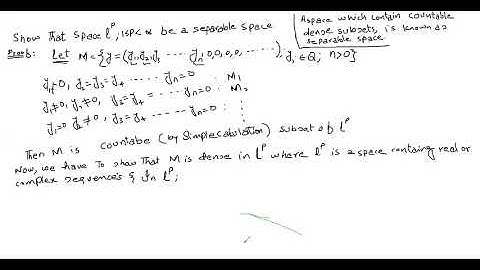 Show that space l^p, 1≤p<∝ be a separable space
A space which contain countable
dense subsets, is known as
separable space
Proof: Let M = { y = (y₁, y₂, y₃ ------ yₙ, 0,0,0, -----) : yᵢ ∈ Q; n>0}
y₁≠0, y₂=y₃=y₄ ------ yₙ=0 : M₁
y₁≠0, y₂≠0, y₃=y₄= ------ yₙ=0 : M₂
y₁=0 y₂≠0, y₃=y₄ ------ yₙ=0 :
Then M is countabe (by Simple Calculation) subset of l^p
Now, we have to show that M is dense in l^p where l^p is a space containg real or
complex sequences ξ in l^p;